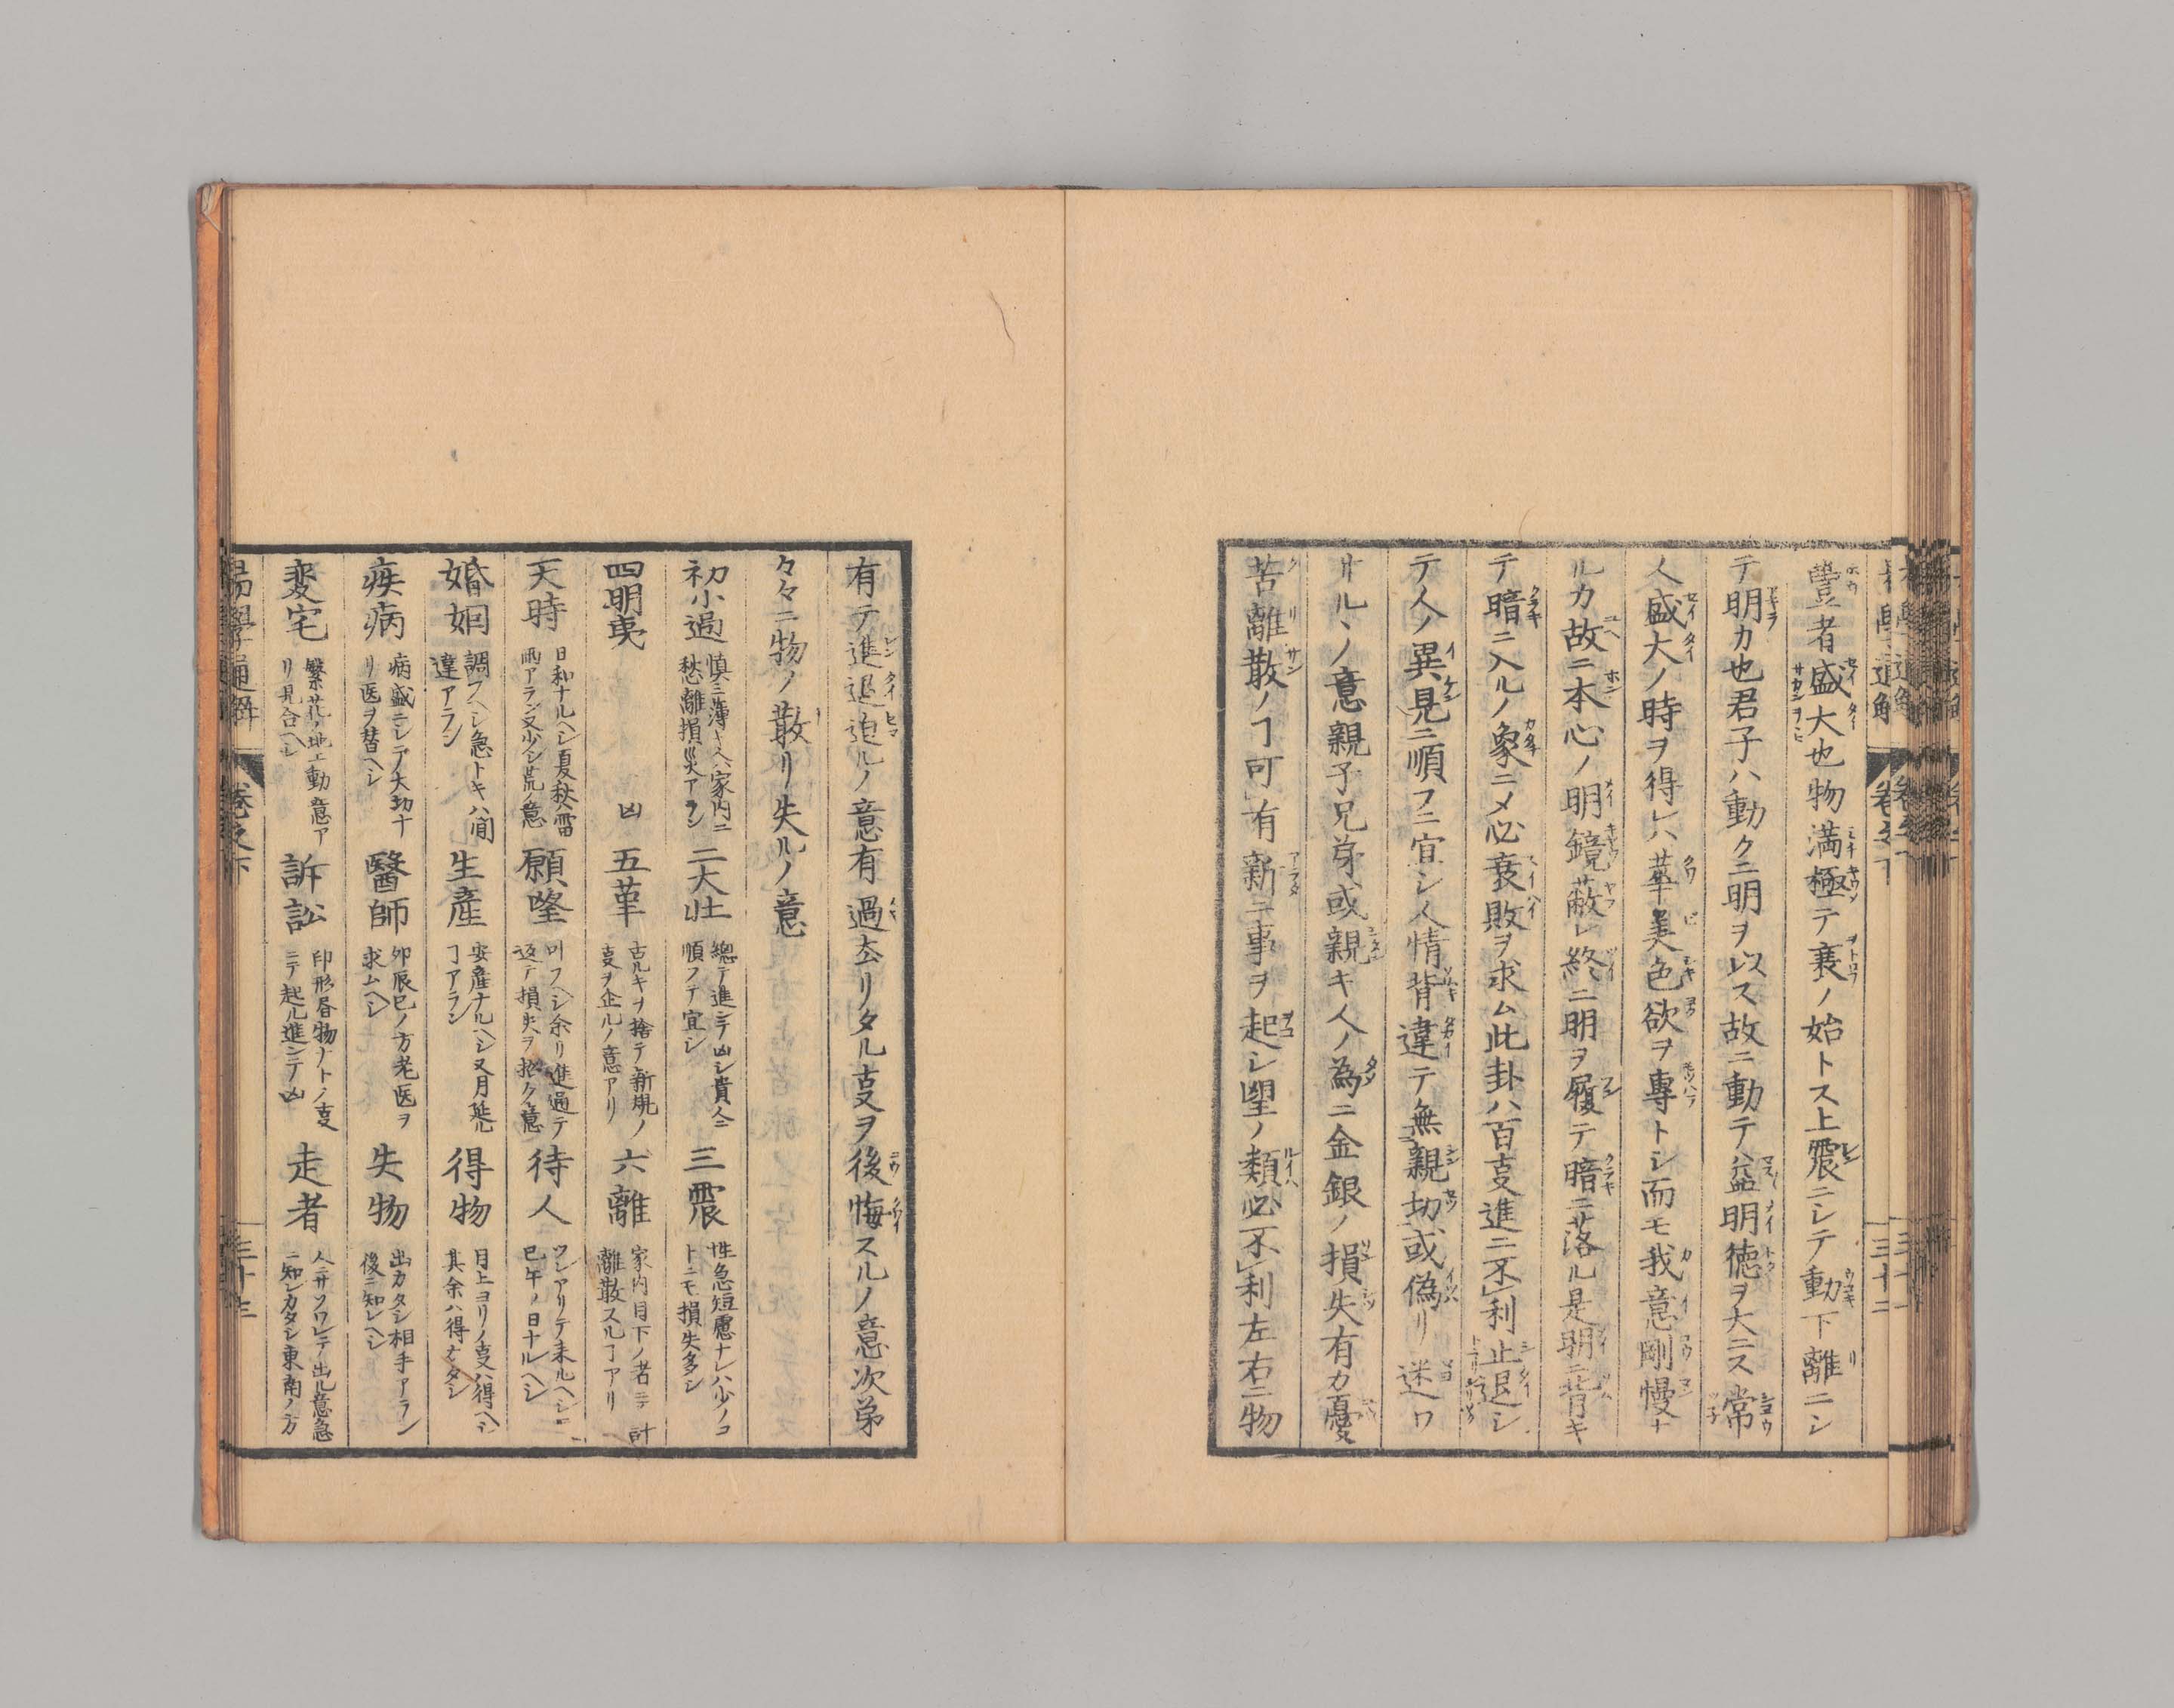 豐者盛大也物満極テ衰ノ始トス上震ニシテ動下離ニシ
テ明カ也君子ハ動クニ明ヲ以ス故ニ動テハ益明徳ヲ大ニス常
人盛大ノ時ヲ得レハ華美色欲ヲ專トシ而モ我意剛慢ナ
ルカ故ニ本心ノ明鏡蔽レ終ニ明ヲ履テ暗ニ落ル是明ニ背キ
テ暗ニ入ルノ象ニメ必衰敗ヲ求ム此卦ハ百㕝進ニ不利止退シ
テ人ノ異見ニ順フニ宜シ人情背違テ無親切或偽リ迷ワ
サルヽノ意親子兄弟或親キ人ノ為ニ金銀ノ損失有カ憂
苦離散ノヿ可有新ニ事ヲ起シ望ノ類必不利左右ニ物
有テ進退迫ルノ意有過去リタル㕝ヲ後悔スルノ意次第
々々ニ物ノ散リ失ルノ意
初小過 慎ミ薄キ人ハ家内ニ
愁離損災アラン
二大壮 總テ進ンテ凶シ貴人ニ
順フテ宜シ
三震 性急短慮ナレハ少ノコ
トニモ損失多シ
四明夷 凶
五革 古ルキヲ捨テ新規ノ
㕝ヲ企ルノ意アリ
六離 家内目下ノ者ニテ
離散スルヿアリ
天時 日和ナルヘシ夏秋雷
雨アラン又少シ荒ノ意
願望 叶フヘシ余リ進過テ
返テ損失ヲ招ク意
待人 ツレアリテ来ルヘシ
巳午ノ日ナルヘシ
婚姻 調フヘシ急トキハ間
違アラン
生産 安産ナルヘシ又月延ル
ヿアラン
得物 目上ヨリノ㕝ハ得ヘシ
其余ハ得カタシ
疾病 病盛ニシテ大切ナ
リ医ヲ替ヘシ
醫師 卯辰巳ノ方老医ヲ
求ムヘシ
失物 出カタシ相手アラン
後ニ知レヘシ
変宅 繁花ノ地エ動意ア
リ見合ヘシ
訴訟 印形唇物ナトノ㕝
ニテ起ル進ンテ凶
走者 人ニサソワレテ出ル意急
ニ知レカタシ東南ノ方
易學通解 卷之下 三十三